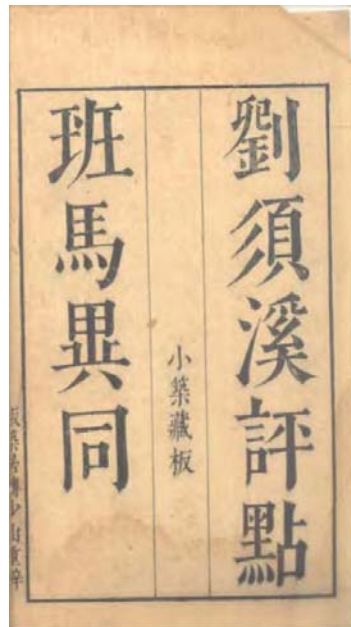 劉須溪評點
小築藏板
班馬異同